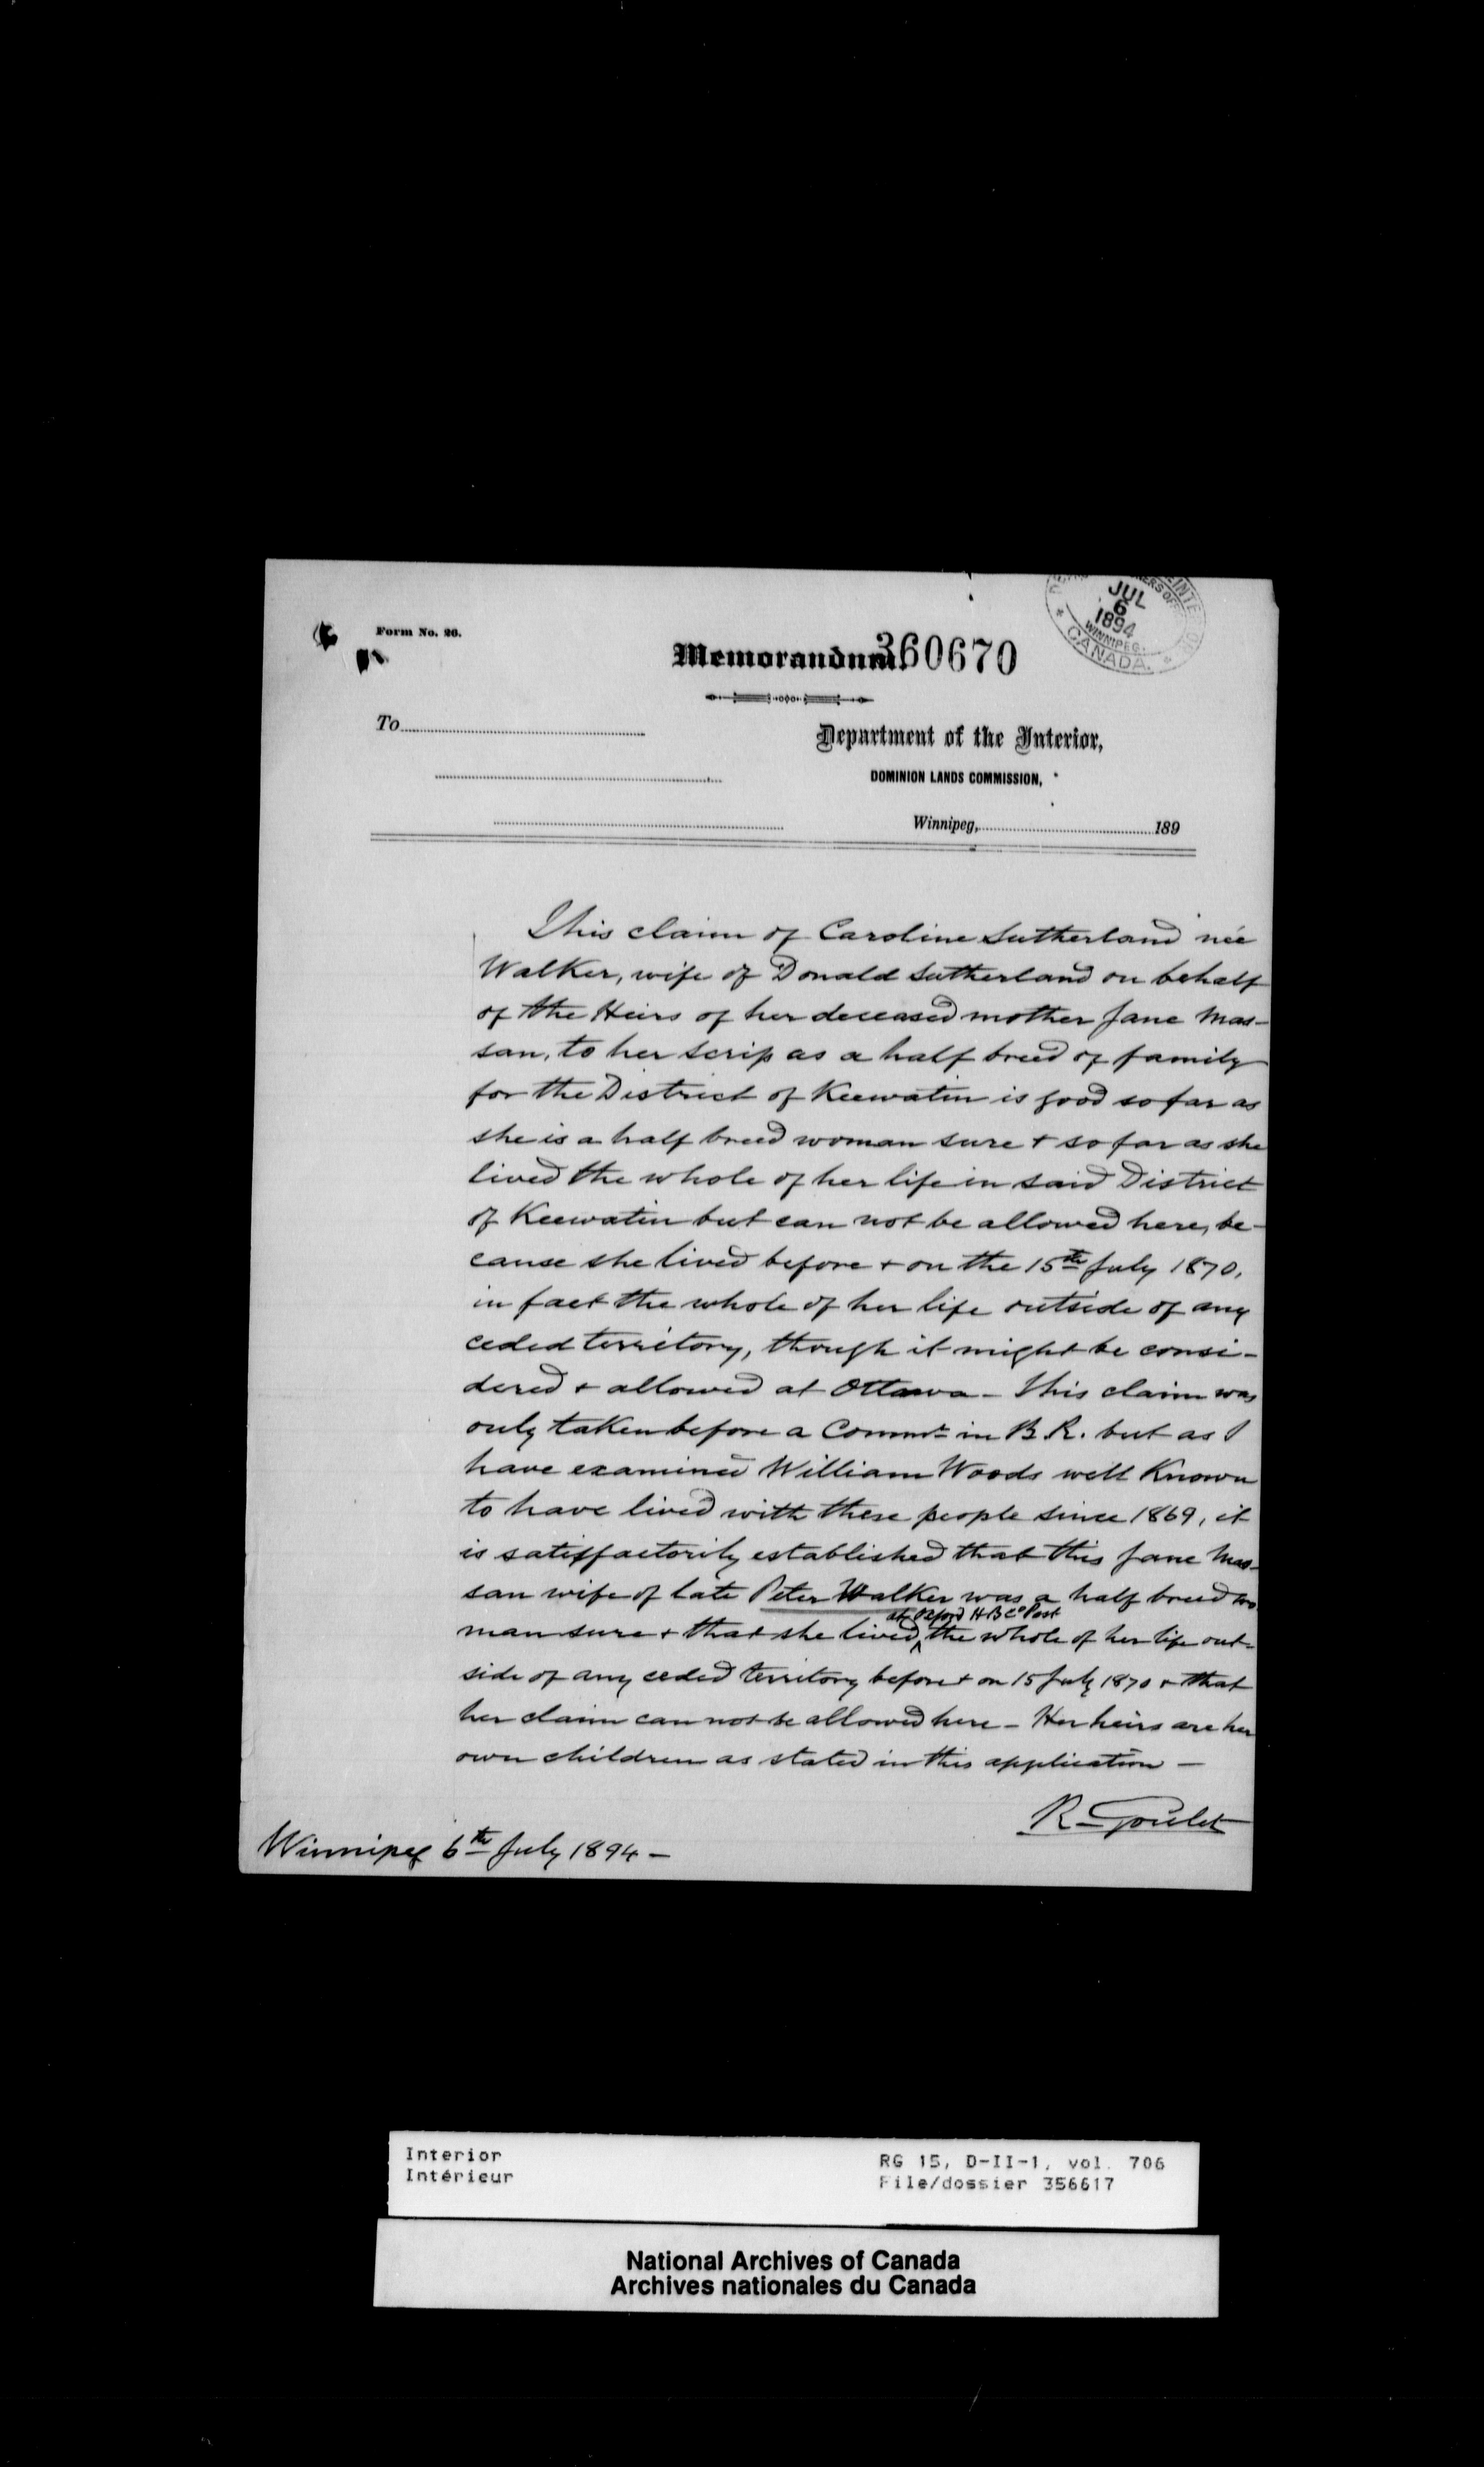 Form No. 26.
Memorandum.
360670
JUL
6
1894
WINNIPEG.
CANADA.
To
Department of the Interior,
DOMINION LANDS COMMISSION,
Winnipeg, 189
This claim of Caroline Sutherland née
Walker, wife of Donald Sutherland on behalf
of the Heirs of her deceased mother Jane Mas-
san, to her scrip as a half breed of family
for the District of Keewatin is good so far as
she is a half breed woman sure + so far as she
lived the whole of her life in said District
of Keewatin but can not be allowed here, be-
cause she lived before + on the 15th July 1870,
in fact the whole of her life outside of any
ceded territory, though it might be consi-
dered + allowed at Ottawa - This claim was
only taken before a Commr in B.R. but as I
have examined William Woods well Known
to have lived with these people since 1869, it
is satisfactorily established that this Jane Mas-
san wife of late Peter Walker was a half breed wo
at Oxford H B Co Post
man sure + that she lived ^ the whole of her life out-
side of any ceded territory before + on 15 July 1870 + that
her claim can not be allowed here - Her heirs are her
own children as stated in this application -
R. Goulet
Winnipeg 6th July 1894 -
Interior
Intérieur
RG 15, D-II-1, vol. 706
File/dossier 356617
National Archives of Canada
Archives nationales du Canada